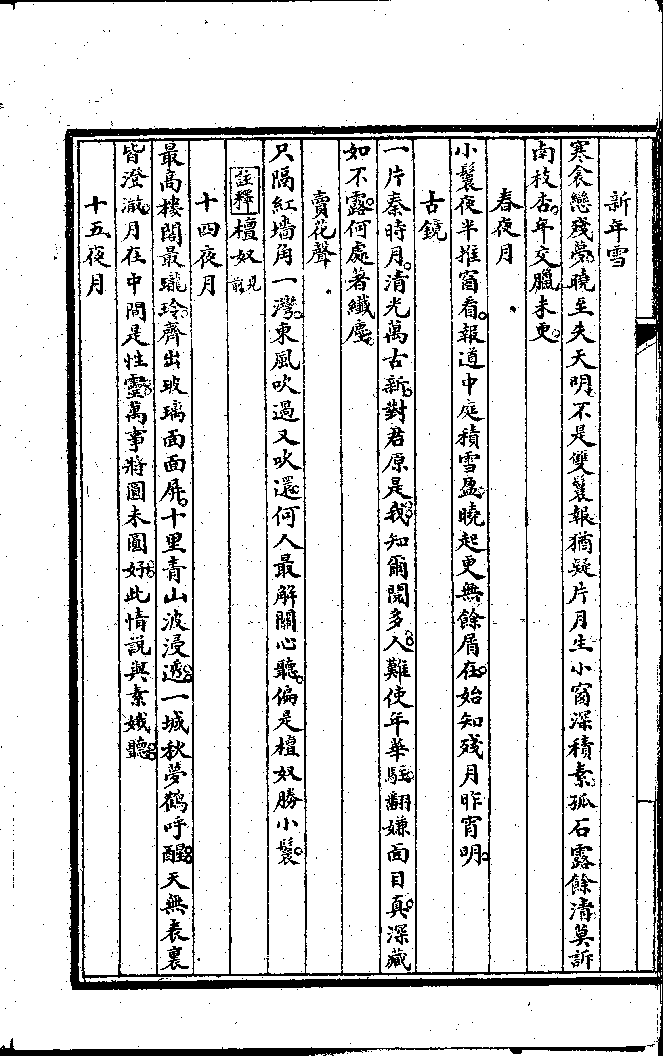 新年雪
寒衾戀殘夢曉至失天明不是雙鬟報猶疑片月生小窗深積素孤石露餘清莫訴
南枝杳年交臘未更
春夜月
小鬟夜半推窗看報道中庭積雪盈曉起更無餘屑在始知殘月昨宵明
古鏡
一片秦時月清光萬古新對君原是我知爾閱多人難使年華駐翻嫌面目真深藏
如不露何處著纖塵
賣花聲
只隔紅墻角一灣東風吹過又吹還何人最解關心聽偏是檀奴勝小鬟
註釋檀奴見前
十四夜月
最高樓閣最瓏玲齊出玻璃面面屏十里青山波浸透一城秋夢鶴呼醒天無表裏
皆澄澈月在中間是性靈萬事將圓未圓好此情說與素娥聽
十五夜月